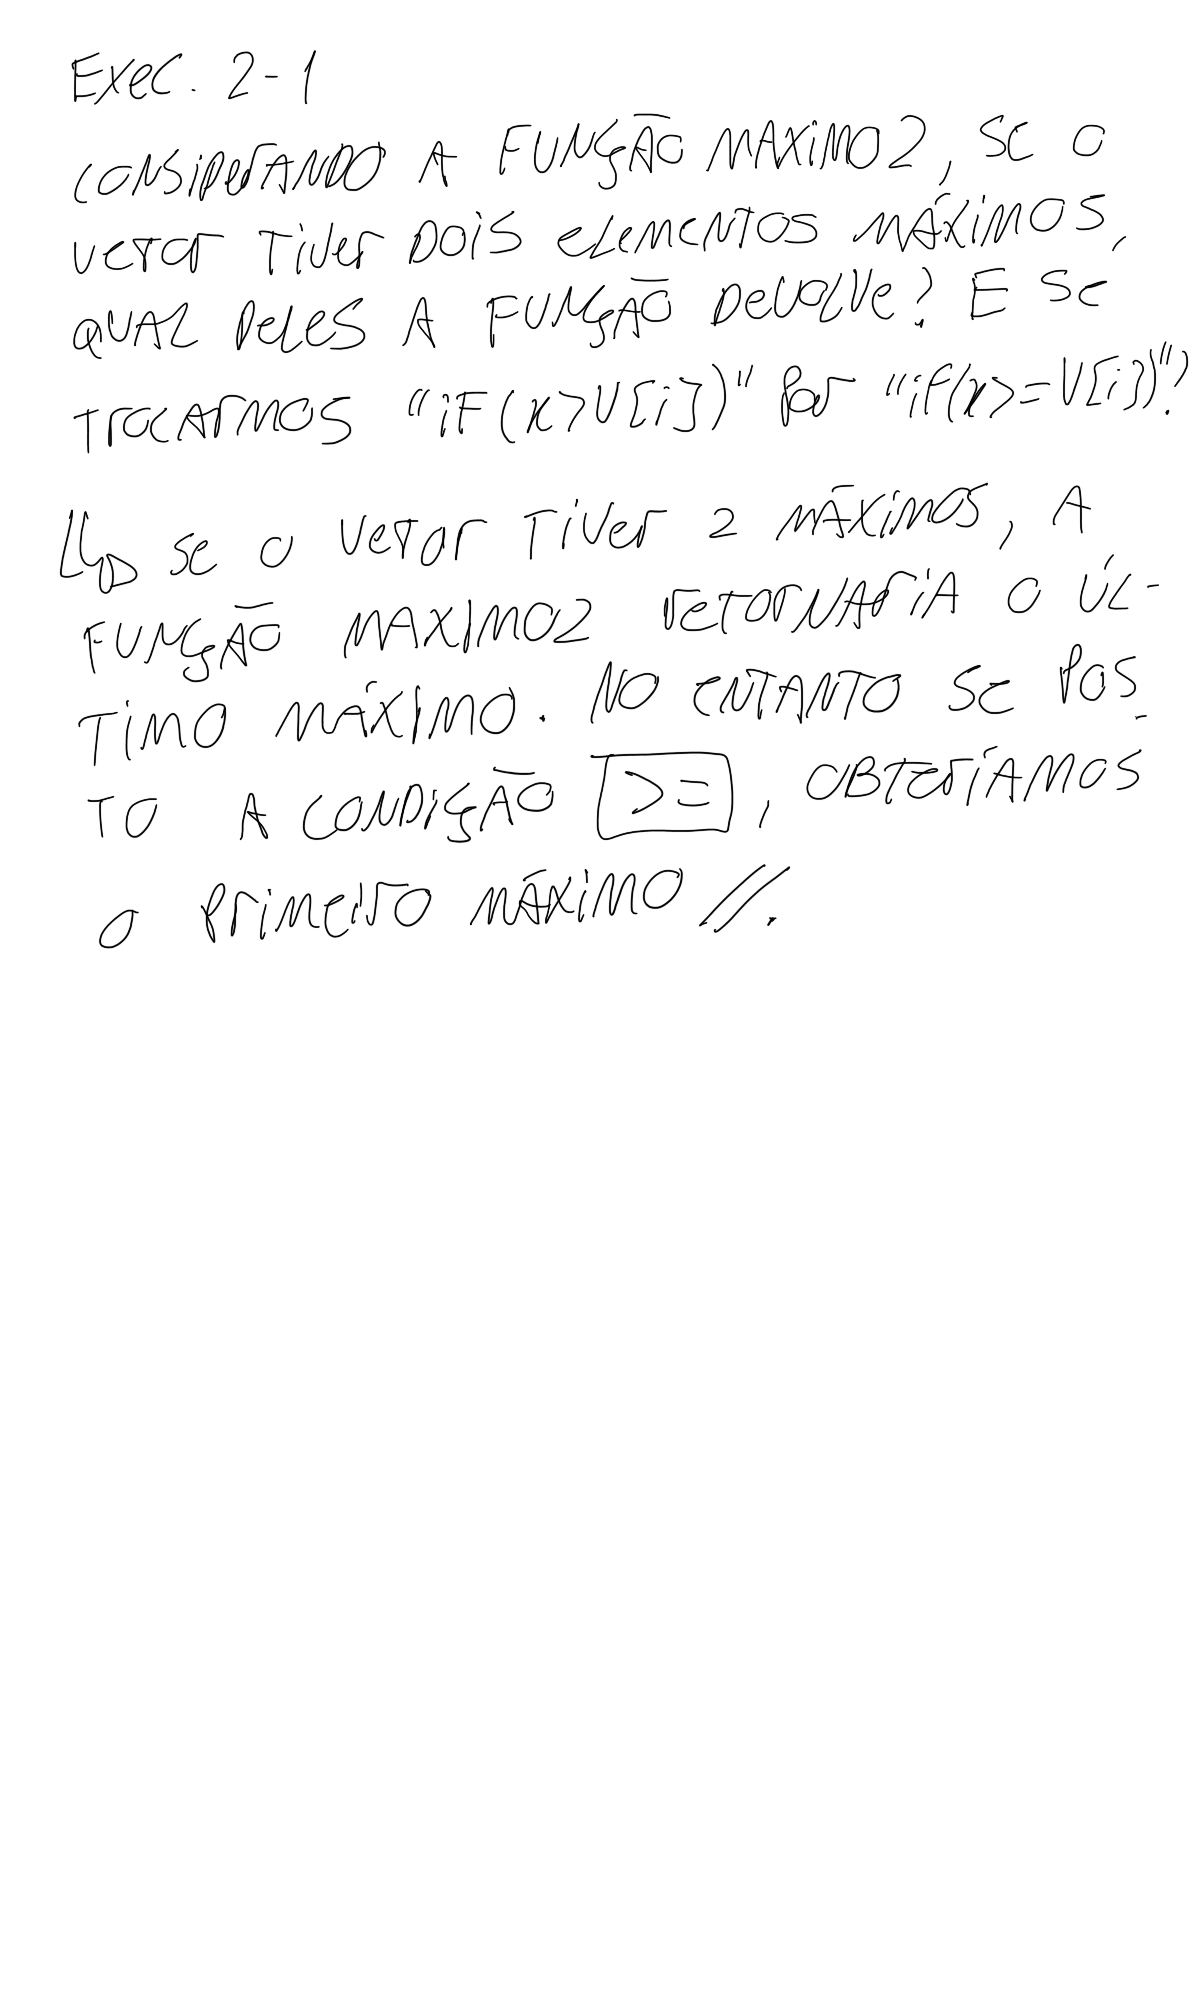 Exec. 2-1
CONSIDERANDO A FUNÇÃO MAXIMO2, SE O
VETOR TIVER DOIS ELEMENTOS MÁXIMOS,
QUAL DELES A FUNÇÃO DEVOLVE? E SE
TROCARMOS "IF(x>V[i])" por "if(x>=V[i])"?
SE O VETOR TIVER 2 MÁXIMOS, A
FUNÇÃO MAXIMO2 RETORNARIA O ÚL-
TIMO MÁXIMO. NO ENTANTO SE POS-
TO A CONDIÇÃO >=, OBTERÍAMOS
O PRIMEIRO MÁXIMO //.